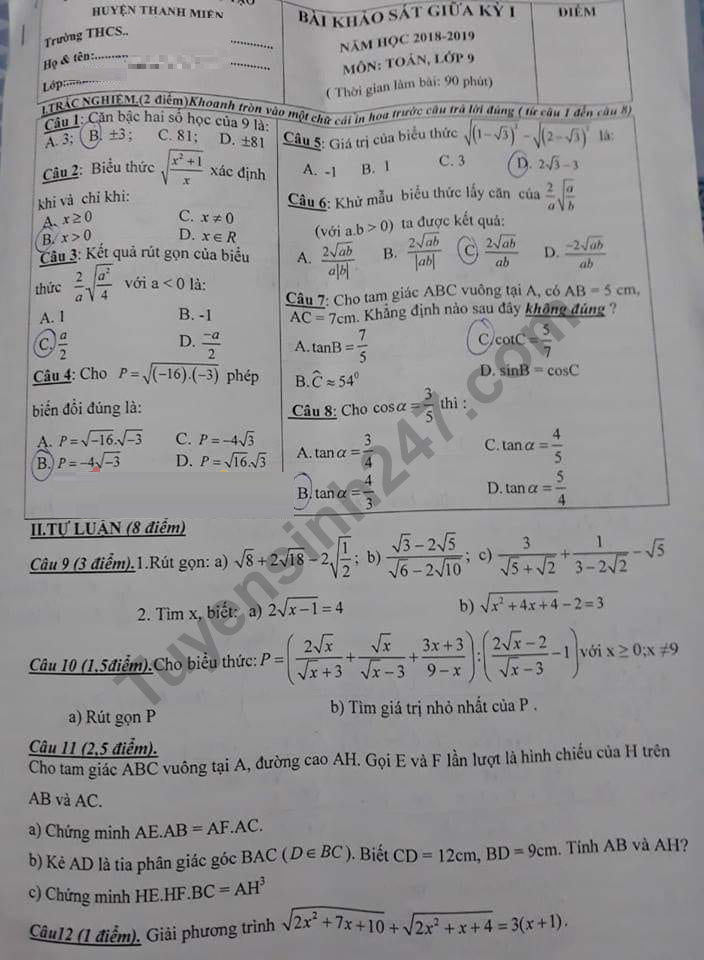 HUYỆN THANH MIỆN
Trường THCS..
Họ & tên:
Lớp:
BÀI KHẢO SÁT GIỮA KỲ I
NĂM HỌC 2018-2019
MÔN: TOÁN, LỚP 9
( Thời gian làm bài: 90 phút)
ĐIỂM
I.TRẮC NGHIỆM.(2 điểm)Khoanh tròn vào một chữ cái in hoa trước câu trả lời đúng ( từ câu 1 đến câu 8)
Câu 1: Căn bậc hai số học của 9 là:
A. 3; B. ±3; C. 81; D. ±81
Câu 2: Biểu thức √((x²+1)/x) xác định
khi và chỉ khi:
A. x ≥ 0 C. x ≠ 0
B. x > 0 D. x ∈ R
Câu 3: Kết quả rút gọn của biểu
thức 2/a √(a²/4) với a < 0 là:
A. 1 B. -1
C. a/2 D. -a/2
Câu 4: Cho P = √((-16).(-3)) phép
biến đổi đúng là:
A. P = √-16.√-3 C. P = -4√3
B. P = -4√-3 D. P = √16.√3
Câu 5: Giá trị của biểu thức √((1-√3)²) - √((2-√3)²) là:
A. -1 B. 1 C. 3 D. 2√3 - 3
Câu 6: Khử mẫu biểu thức lấy căn của 2/a √(a/b)
(với a.b > 0) ta được kết quả:
A. 2√ab/(a|b|) B. 2√ab/|ab| C. 2√ab/ab D. -2√ab/ab
Câu 7: Cho tam giác ABC vuông tại A, có AB = 5 cm,
AC = 7cm. Khẳng định nào sau đây không đúng ?
A. tanB = 7/5 C. cotC = 5/7
B. Ĉ ≈ 54⁰ D. sinB = cosC
Câu 8: Cho cosα = 3/5 thì :
A. tan α = 3/4 C. tan α = 4/5
B. tan α = 4/3 D. tan α = 5/4
II.TỰ LUẬN (8 điểm)
Câu 9 (3 điểm).1.Rút gọn: a) √8 + 2√18 - 2√(1/2); b) (√3 - 2√5)/(√6 - 2√10); c) 3/(√5 + √2) + 1/(3 - 2√2) - √5
2. Tìm x, biết: a) 2√(x-1) = 4 b) √(x² + 4x + 4) - 2 = 3
Câu 10 (1,5điểm).Cho biểu thức: P = (2√x/(√x + 3) + √x/(√x - 3) + (3x + 3)/(9 - x)) : ((2√x - 2)/(√x - 3) - 1) với x ≥ 0; x ≠9
a) Rút gọn P b) Tìm giá trị nhỏ nhất của P .
Câu 11 (2,5 điểm).
Cho tam giác ABC vuông tại A, đường cao AH. Gọi E và F lần lượt là hình chiếu của H trên
AB và AC.
a) Chứng minh AE.AB = AF.AC.
b) Kẻ AD là tia phân giác góc BAC ( D ∈ BC ). Biết CD = 12cm, BD = 9cm. Tính AB và AH?
c) Chứng minh HE.HF.BC = AH³
Câu12 (1 điểm). Giải phương trình √(2x² + 7x + 10) + √(2x² + x + 4) = 3(x + 1).
Tuyensinh247.com